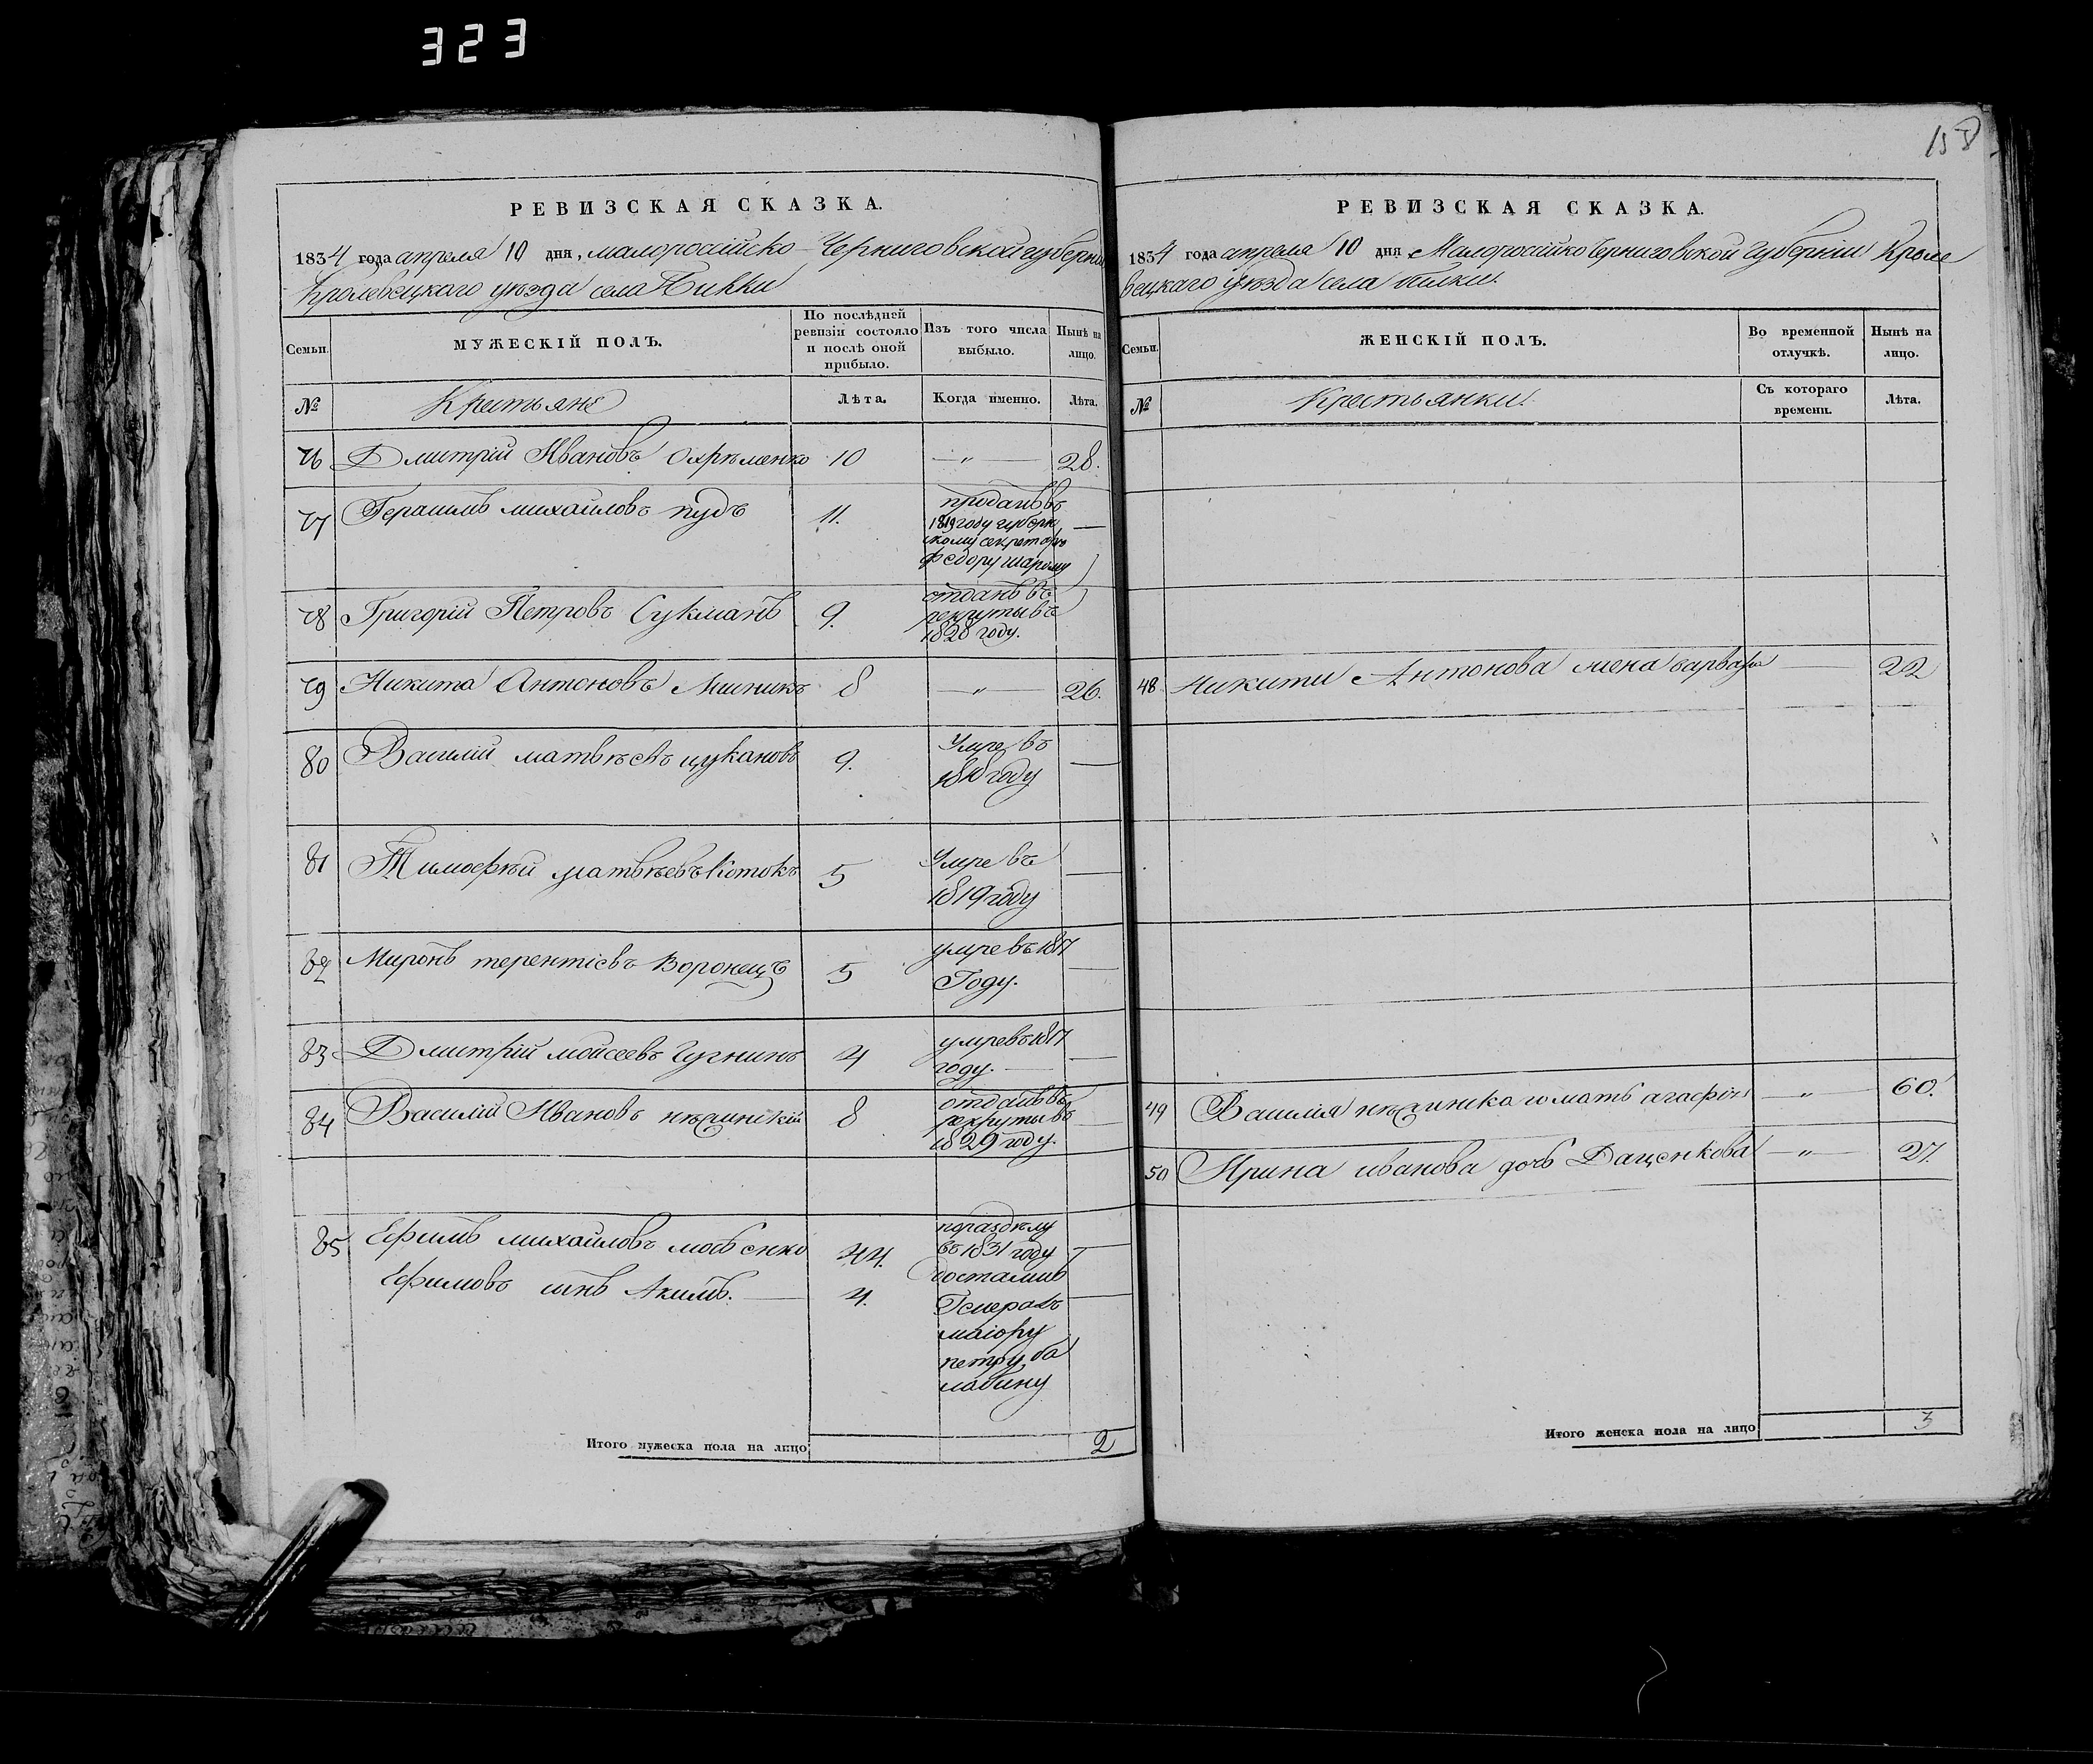 323
158
РЕВИЗСКАЯ СКАЗКА.
1834 года апреля 10 дня, малоросійско-Черниговской губерніи
Кролевецкаго уезда села
МУЖЕСКІЙ ПОЛЪ.
Семьи.
По послѣдней ревизіи состояло и послѣ оной прибыло.
Изъ того числа выбыло.
Нынѣ на лицо.
№
Крестьяне
Лѣта.
Когда именно.
Лѣта.
76 Дмитрій Ивановъ Охрѣменко 10 —〃— 28.
77 Герасимъ михайловъ пудъ 11. проданъ въ
1819 году губерн
скому секретарю
федору шарому —
78 Григорій Петровъ Сукманъ 9. отданъ въ
рекруты въ
1828 году.
79 Никита Антоновъ 8 —〃— 26.
80 Василий матвѣевъ цукановъ 9. Умре въ
1818 году —
81 Тимофѣй матвѣевъ Котокъ 5 Умре въ
1819 году —
82 Миронъ терентіевъ Воронецъ 5 умре въ 1817
Году. —
83 Дмитрій моисеевъ 4 умре въ 1817
году. —
84 Василий Ивановъ 8 отданъ въ
рекруты въ
1829 году. —
85 Ефимъ михайловъ 44. по раздѣлу
въ 1831 году —
Ефимовъ сынъ Акимъ. — 4. достались
Генералъ —
маіору
петру ба
лабину
Итого мужеска пола на лицо 2
РЕВИЗСКАЯ СКАЗКА.
1834 года апреля 10 дня Малоросійско Черниговской Губерніи Кроле
вецкаго уѣзда села
Семьи.
ЖЕНСКІЙ ПОЛЪ.
Во временной отлучкѣ.
Нынѣ на лицо.
№
Крестьянки.
Съ котораго времени.
Лѣта.
48 Никиты Антонова жена варвара — 22
49 Василія мать агафія —〃— 60.
50 Ирина иванова дочь Даценкова —〃— 27.
Итого женска пола на лицо 3